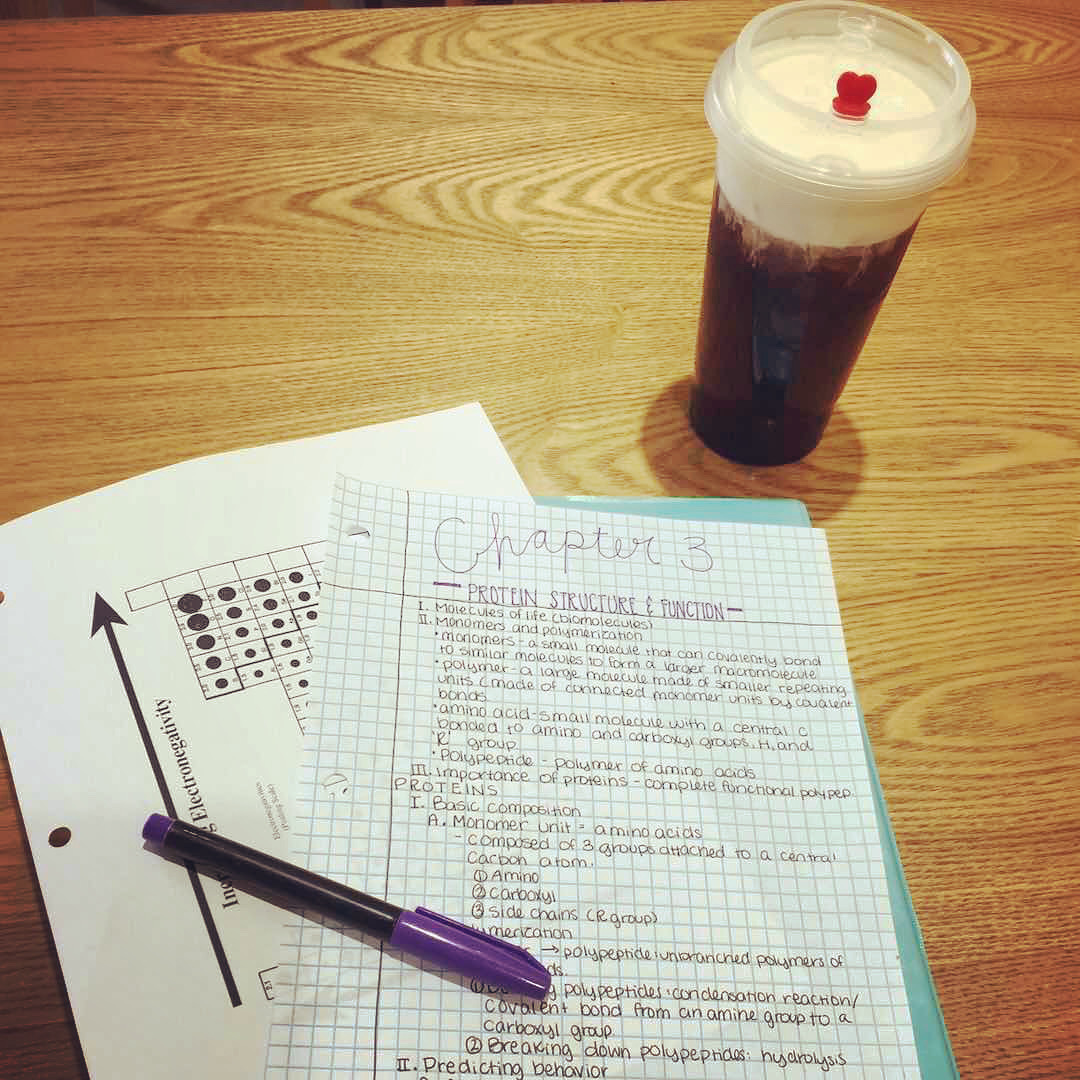 Chapter 3
PROTEIN STRUCTURE & FUNCTION
I. Molecules of life (biomolecules)
II. Monomers and polymerization
• monomers - a small molecule that can covalently bond
to similar molecules to form a larger macromolecule
• polymer - a large molecule made of smaller repeating
units (made of connected monomer units by covalent
bonds
• amino acid - small molecule with a central C
bonded to amino and carboxyl groups, H, and
R group
• Polypeptide - polymer of amino acids
III. Importance of proteins - complete functional polypep.
PROTEINS
I. Basic composition
A. Monomer unit = amino acids
- composed of 3 groups attached to a central
carbon atom.
① Amino
② Carboxyl
③ side chains (R group)
ymerization
→ polypeptide: unbranched polymers of
ds
① g polypeptides: condensation reaction/
covalent bond from an amine group to a
carboxyl group
② Breaking down polypeptides: hydrolysis
II. Predicting behavior
g Electronegativity
Electronegativities
(Pauling Scale)